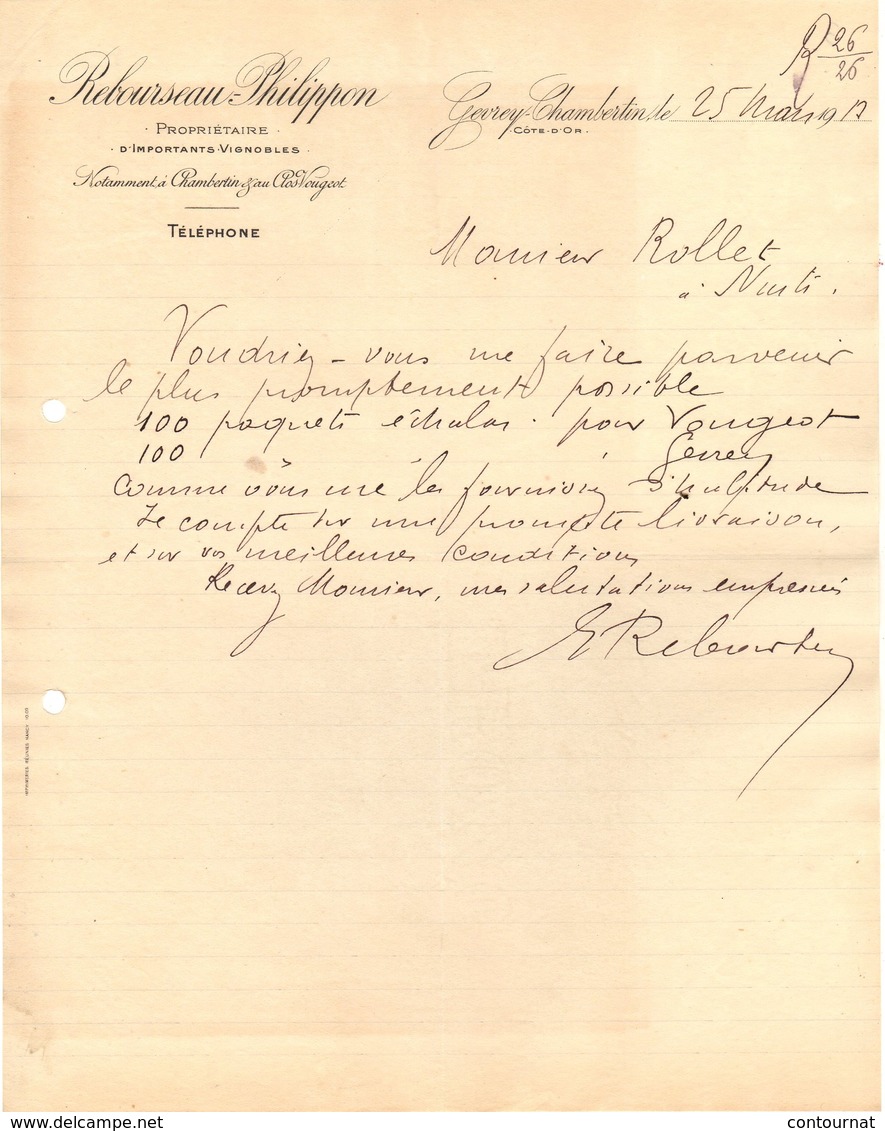 R 26/26
Rebourseau-Philippon
PROPRIÉTAIRE
D'IMPORTANTS VIGNOBLES
Notamment à Chambertin & au Clos Vougeot
TÉLÉPHONE
Gevrey-Chambertin, le 25 Mars 19
CÔTE-D'OR
Monsieur Rollet
à Nuits.
Voudriez-vous me faire parvenir
le plus promptement possible
100 paquets échalas. pour Vougeot
100 Gevrey
comme vous me les fournissiez d'habitude
Je compte sur une prompte livraison,
et sur vos meilleures conditions
Recevez Monsieur, mes salutations empressées
E Rebourseau
IMPRIMERIES RÉUNIES NANCY
www.delcampe.net
contournat